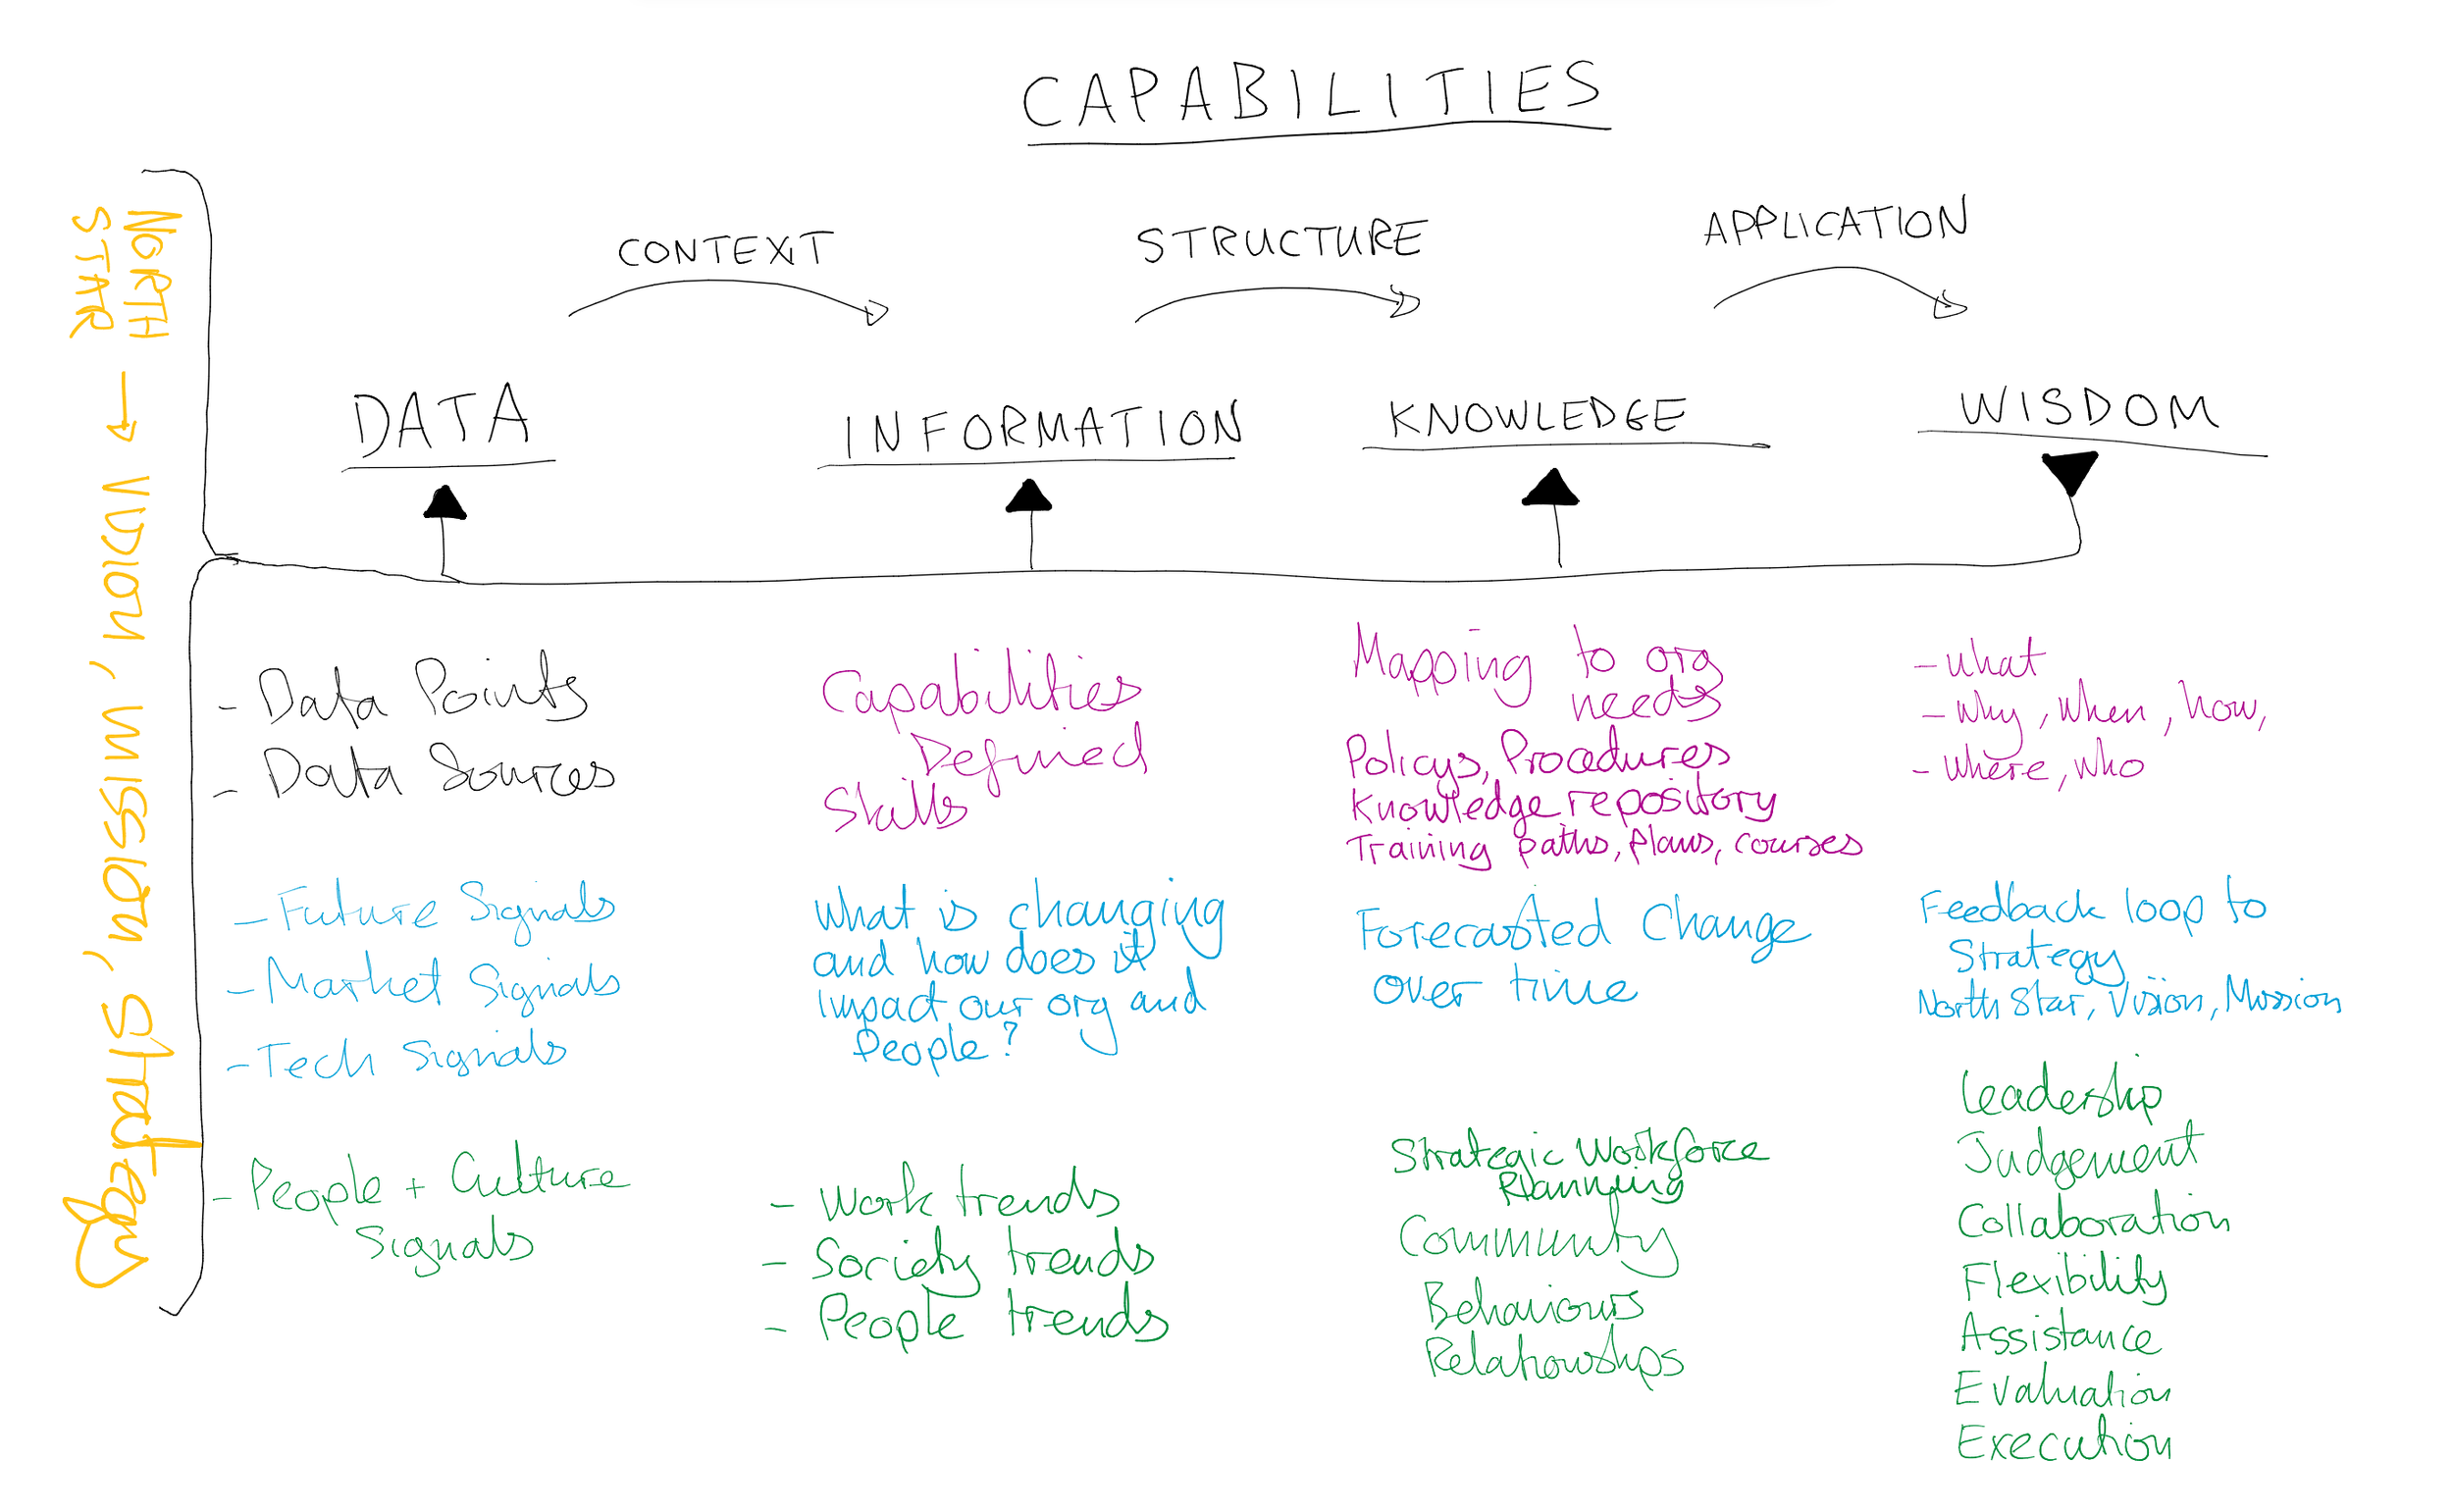 CAPABILITIES
NORTH
STAR
→ VISION, MISSION, Strategy
CONTEXT
STRUCTURE
APPLICATION
DATA
INFORMATION
KNOWLEDGE
WISDOM
- Data Points
- Data Sources
- Future Signals
- Market Signals
- Tech Signals
- People + Culture
Signals
Capabilities
Defined
Skills
What is changing
and how does it
impact our org and
People?
- Work trends
- Society trends
- People trends
Mapping to org
needs
Policys, Procedures
Knowledge repository
Training paths, plans, courses
Forecasted Change
over time
Strategic Workforce
Planning
Community
Behaviours
Relationships
- What
- Why, When, how,
- Where, who
Feedback loop to
Strategy
North Star, Vision, Mission
Leadership
Judgement
Collaboration
Flexibility
Assistance
Evaluation
Execution